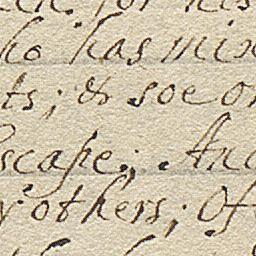 for his
ho has mix
ts; & soe or
scape; And
y others; Of